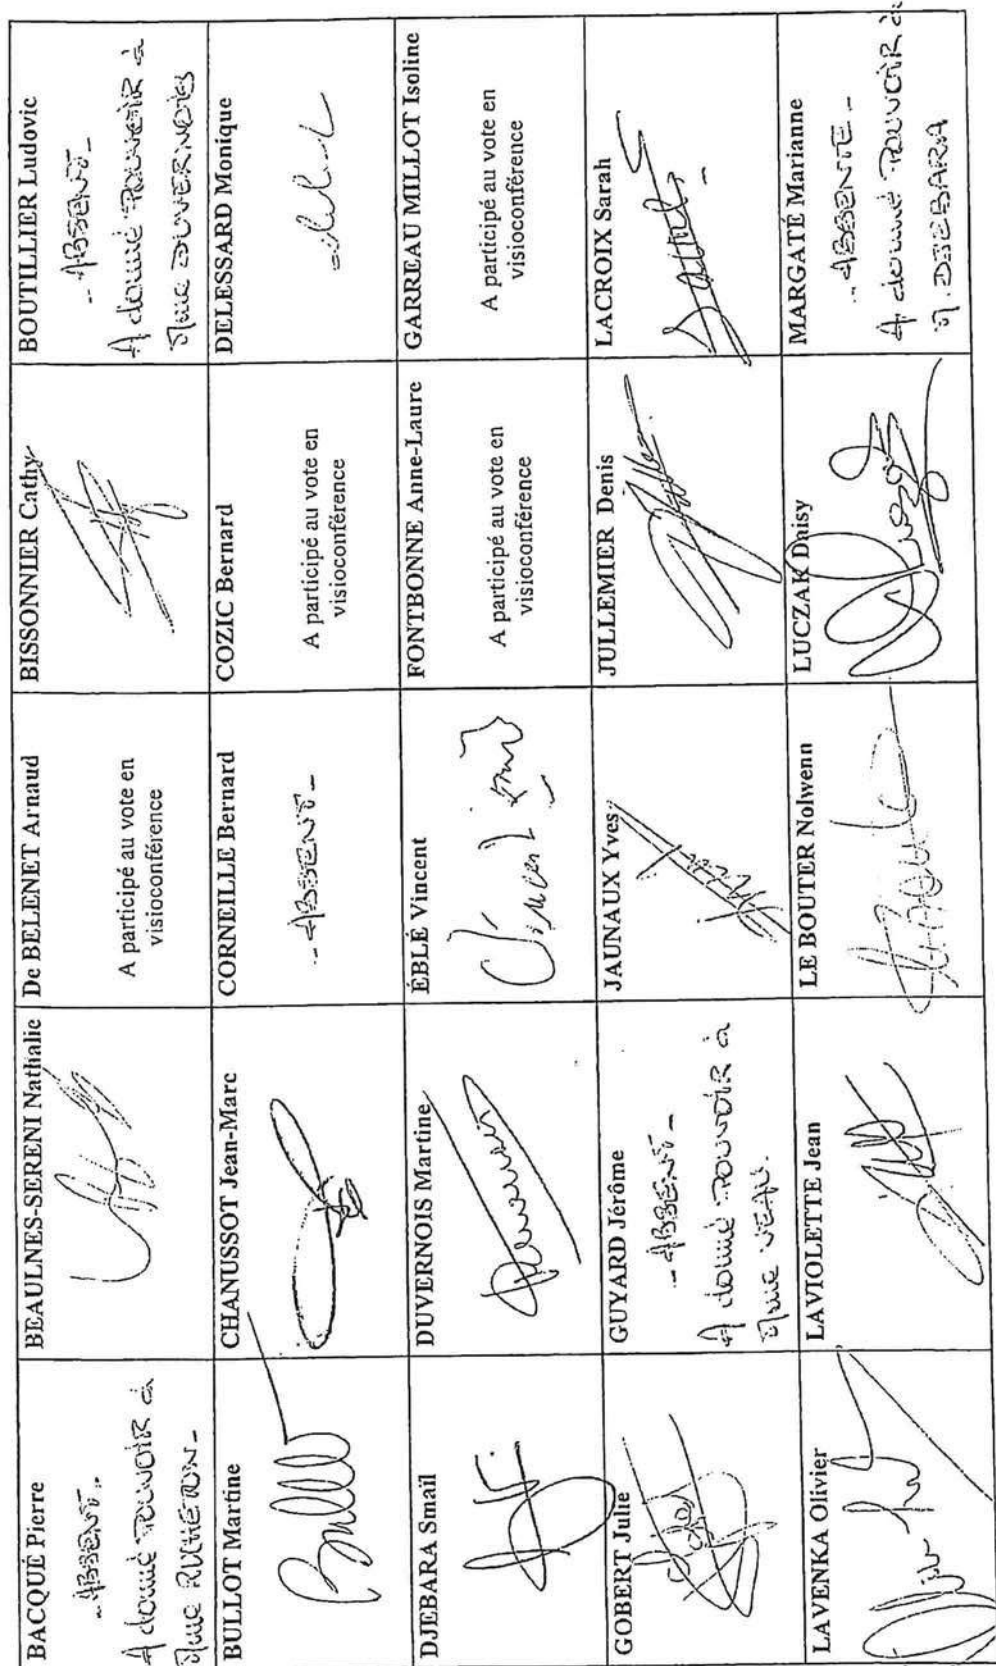 BACQUÉ Pierre
- ABSENT -
A donné POUVOIR à
Mme RUCHETON -
BEAULNES-SERENI Nathalie
De BELENET Arnaud
A participé au vote en
visioconférence
BISSONNIER Cathy
BOUTILLIER Ludovic
- ABSENT -
A donné POUVOIR à
Mme DUVERNOIS
BULLOT Martine
CHANUSSOT Jean-Marc
CORNEILLE Bernard
- ABSENT -
COZIC Bernard
A participé au vote en
visioconférence
DELESSARD Monique
DJEBARA Smaïl
DUVERNOIS Martine
ÉBLÉ Vincent
FONTBONNE Anne-Laure
A participé au vote en
visioconférence
GARREAU MILLOT Isoline
A participé au vote en
visioconférence
GOBERT Julie
GUYARD Jérôme
- ABSENT -
A donné POUVOIR à
Mme VEAU.
JAUNAUX Yves
JULLEMIER Denis
LACROIX Sarah
LAVENKA Olivier
LAVIOLETTE Jean
LE BOUTER Nolwenn
LUCZAK Daisy
MARGATÉ Marianne
- ABSENTE -
A donné POUVOIR à
M. DJEBARA